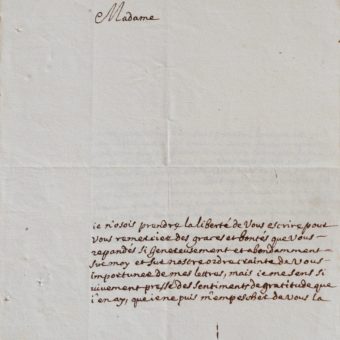 Madame
ie n'osois prendre la liberté de Vous escrire pour
vous remercier des graces et bontés que Vous
repandés si Genereusement et abondamment
sur moy et sur nostre ordre crainte da Vous
importuner de mes lettres, mais ie me sens si
vivement pressé des sentiments de gratitude que
i'en ay, que ie ne puis m'empescher da vous la